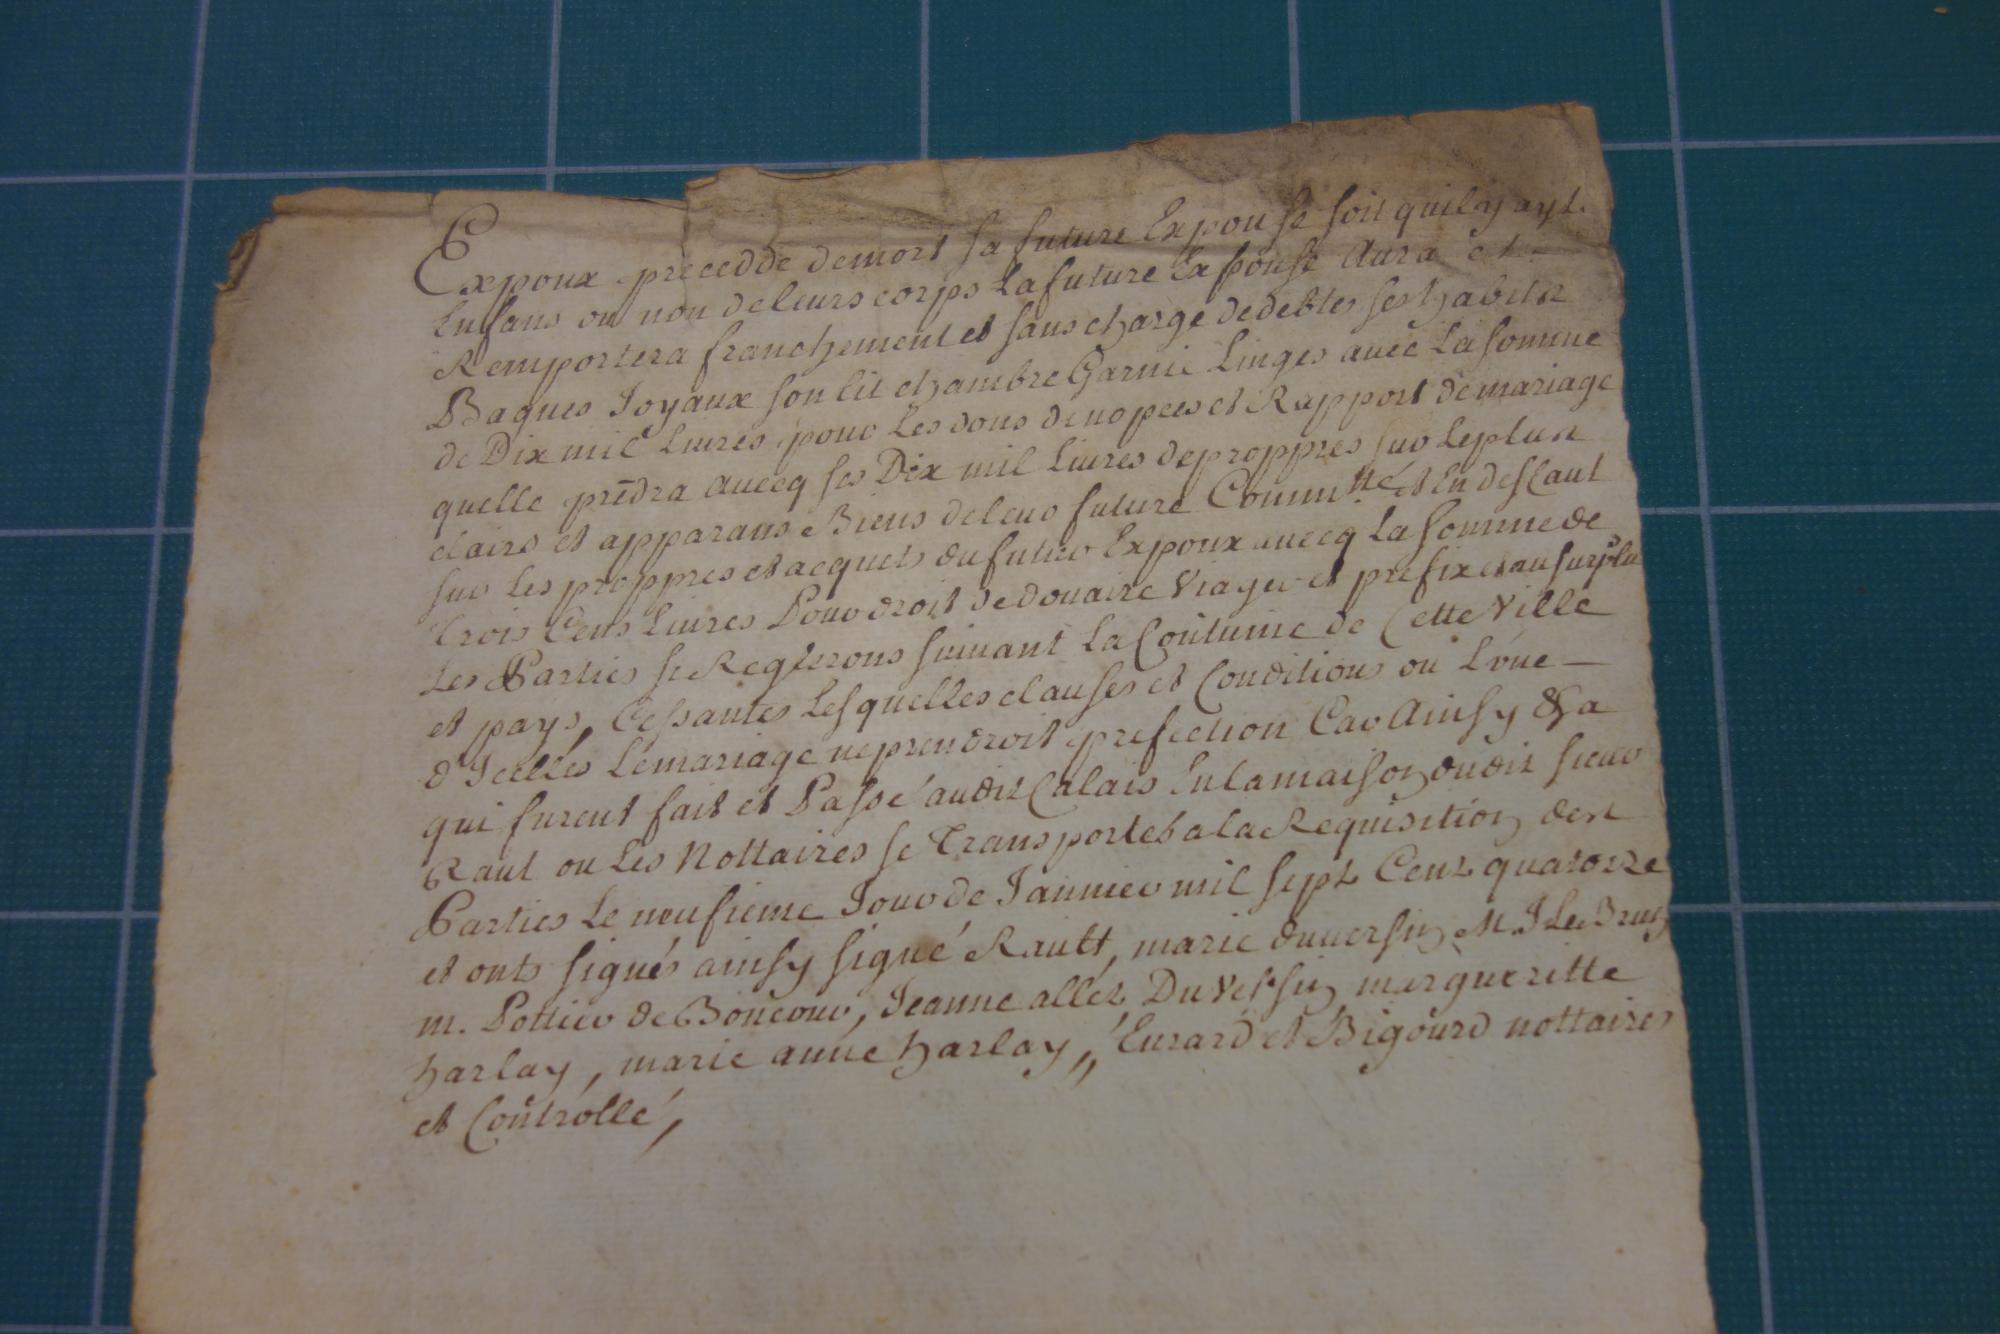 Expoux precedde demort sa future Expouse soit quil y ayt
Enfans ou non deleurs corps La future Expouse Aura et
Remportera franchement et sans charge dedebtes ses habits
Bagues Joyaux son Lit chambre Garnie Linges avec La somme
de Dix mil Livres pour Les dons denopces et Rapport demariage
quelle prēdra avecq ses Dix mil Livres depropprés sur Leplus
clairs et apparans Biens deleur future Commtté et En deffaut
sur Les proppres et acquets du futur Expoux avecq La somme de
Trois Cens Livres Pour droit dedouaire Viager et prefix et au surplus
Les Parties se Reglerons suivant La Coutume de Cette Ville
et pays, Cessantes Lesquelles clauses et Conditions ou L'une
d'Icelles Lemariage neprendroit prefection Car Ainsy &a
qui furent fait et Passé audit Calais En lamaison dudit sieur
Raul ou Les Nottaires se Transportés ala Requisition des
Parties Le neufieme Jour de Janvier mil sept Cent quatorze
et onts signés ainsy signé Rault, marie duversin, M. J Le Brun
m. Pottier de Boncour, Jeanne allez, Duversin, margueritte
harlay, marie anne harlay, Evrard et Bigourd nottaires
et Controllé,